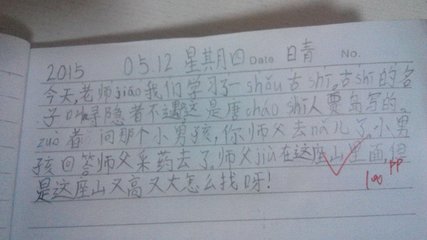 2015 0512 星期四 Date 日青 No.
今天,老师jiāo我们学习了一shǒu古shī。古shī的名
子叫寻隐者不遇,这是唐cháo shī人贾岛写的。
zuò者 问那个小男孩,你师父去nǎ儿了,小男
孩回答师父采药去了,师父jiù在这座山里面,但
是这座山又高又大怎么找呀!
100